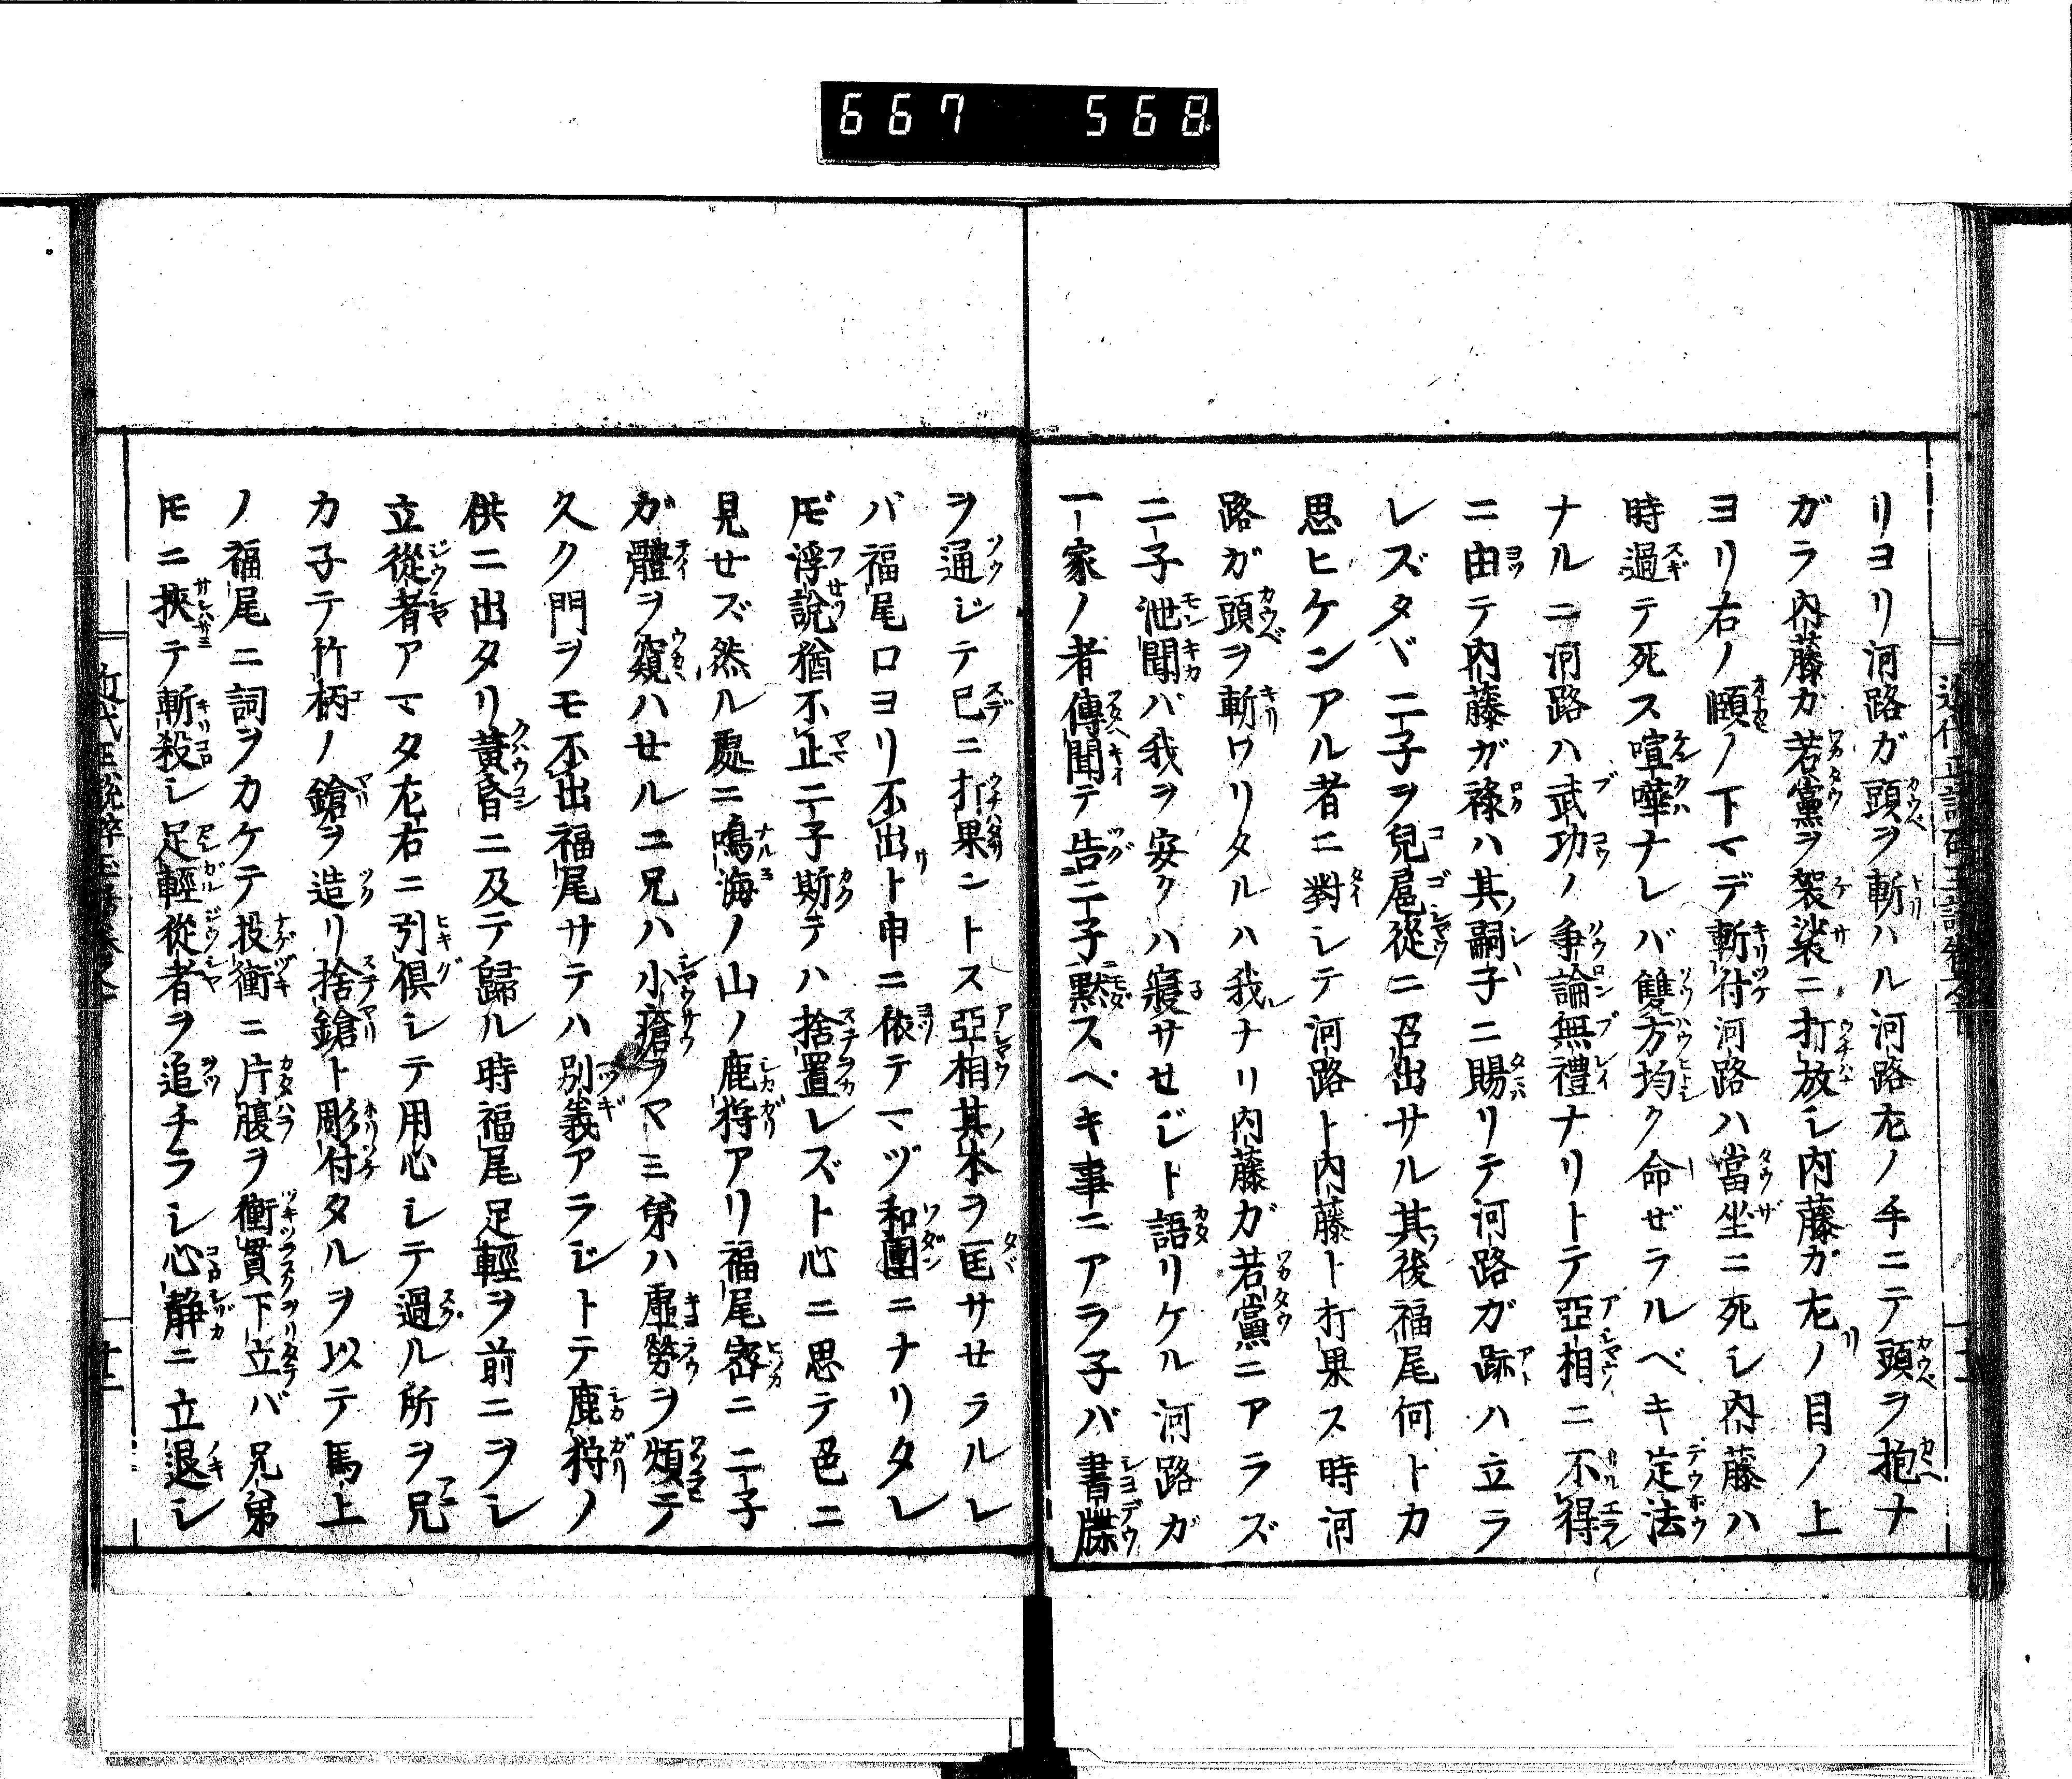 667 568
リヨリ河路ガ頭ヲ斬ハル河路左ノ手ニテ頭ヲ抱ナ
ガラ内藤ガ若黨ヲ袈裟ニ打放シ内藤ガ左ノ目ノ上
ヨリ右ノ頤ノ下マデ斬付河路ハ當坐ニ死シ内藤ハ
時過テ死ス喧嘩ナレバ雙方均ク命ゼラルベキ定法
ナルニ河路ハ武功ノ爭論無禮ナリトテ亞相ニ不得
ニ由テ内藤ガ祿ハ其嗣子ニ賜リテ河路ガ跡ハ立ラ
レズタバ二子ヲ兒扈從ニ召出サル其後福尾何トカ
思ヒケンアル者ニ對シテ河路ト内藤ト打果ス時河
路ガ頭ヲ斬ワリタルハ我ナリ内藤ガ若黨ニアラズ
二子泄聞バ我ヲ安クハ寢サセジト語リケル河路ガ
一家ノ者傳聞テ告二子默スベキ事ニアラ子バ書牒
ヲ通ジテ已ニ打果ントス亞相其本ヲ匡サセラルレ
バ福尾口ヨリ不出ト申ニ依テマヅ和團ニナリタレ
𪜈浮説猶不止二子斯テハ捨置レズト心ニ思テ色ニ
見セズ然ル處ニ鳴海ノ山ノ鹿狩アリ福尾密ニ二子
ガ體ヲ窺ハセルニ兄ハ小瘡ヲヤミ弟ハ虚勞ヲ煩テ
久ク門ヲモ不出福尾サテハ別義アラジトテ鹿狩ノ
供ニ出タリ黄昏ニ及テ歸ル時福尾足輕ヲ前ニヲシ
立從者アマタ左右ニ引倶シテ用心シテ過ル所ヲ兄
カ子テ竹柄ノ鎗ヲ造リ捨鎗ト彫付タルヲ以テ馬上
ノ福尾ニ詞ヲカケテ投衝ニ片腹ヲ衝貫下立バ兄弟
𪜈ニ挾テ斬殺シ足輕從者ヲ追チラシ心靜ニ立退シ